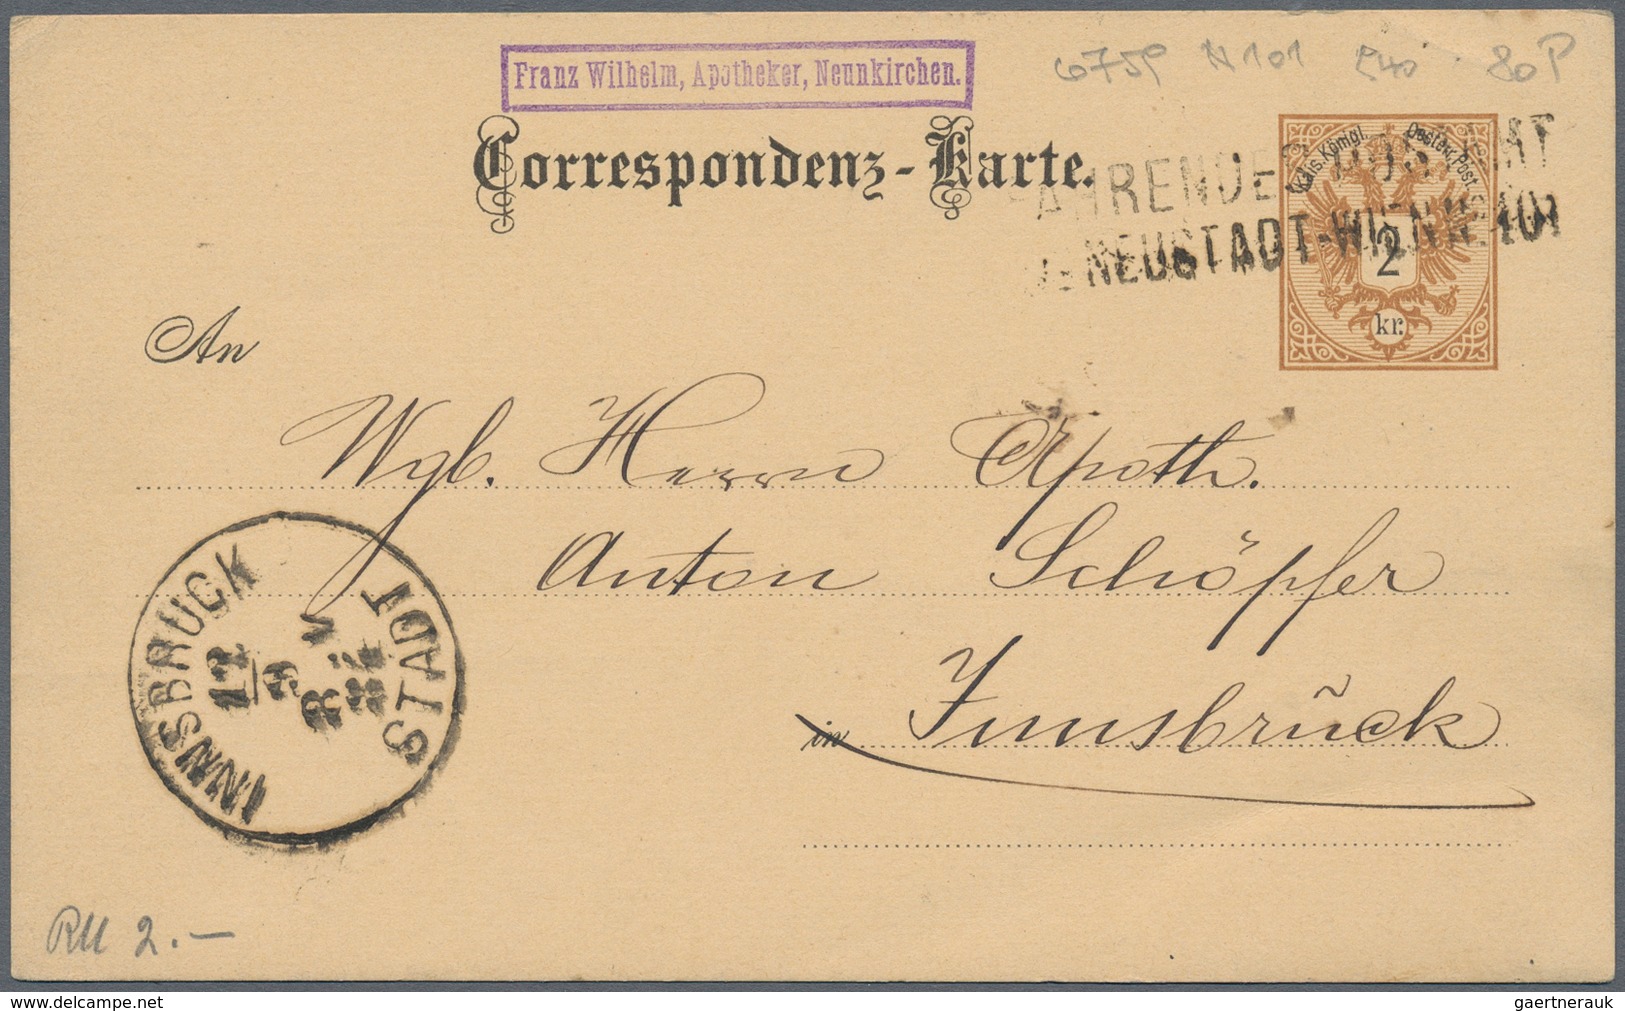 Franz Wilhelm, Apotheker, Neunkirchen.
6759 N 101 80 P
Correspondenz-Karte.
FAHRENDES POSTAMT
W-NEUSTADT-WIEN N. 101
Kais. Königl. Oesterr. Post.
2
kr.
An
Wgb. Herrn Apoth.
Anton Schöpfer
in Innsbrück
INNSBRUCK STADT
12
9
8 - V
RU 2.—
www.delcampe.net
gaertnerauk